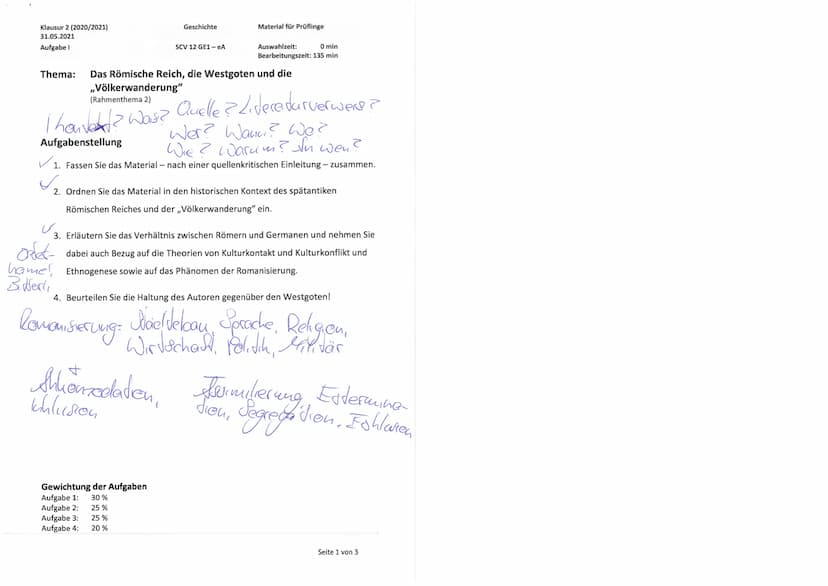 Klausur 2 (2020/2021) Geschichte Material für Prüflinge
31.05.2021
Aufgabe I SCV 12 GE1 – eA Auswahlzeit: 0 min
Bearbeitungszeit: 135 min
Thema: Das Römische Reich, die Westgoten und die
„Völkerwanderung“
(Rahmenthema 2)
Was? Quelle?
Wer? Wann? Wo?
Wie? Warum? An wen?
Aufgabenstellung
1. Fassen Sie das Material – nach einer quellenkritischen Einleitung – zusammen.
2. Ordnen Sie das Material in den historischen Kontext des spätantiken
Römischen Reiches und der „Völkerwanderung“ ein.
3. Erläutern Sie das Verhältnis zwischen Römern und Germanen und nehmen Sie
dabei auch Bezug auf die Theorien von Kulturkontakt und Kulturkonflikt und
Ethnogenese sowie auf das Phänomen der Romanisierung.
4. Beurteilen Sie die Haltung des Autoren gegenüber den Westgoten!
Romanisierung = Städtebau, Sprache, Religion,
Wirtschaft, Politik, Militär
Gewichtung der Aufgaben
Aufgabe 1: 30 %
Aufgabe 2: 25 %
Aufgabe 3: 25 %
Aufgabe 4: 20 %
Seite 1 von 3